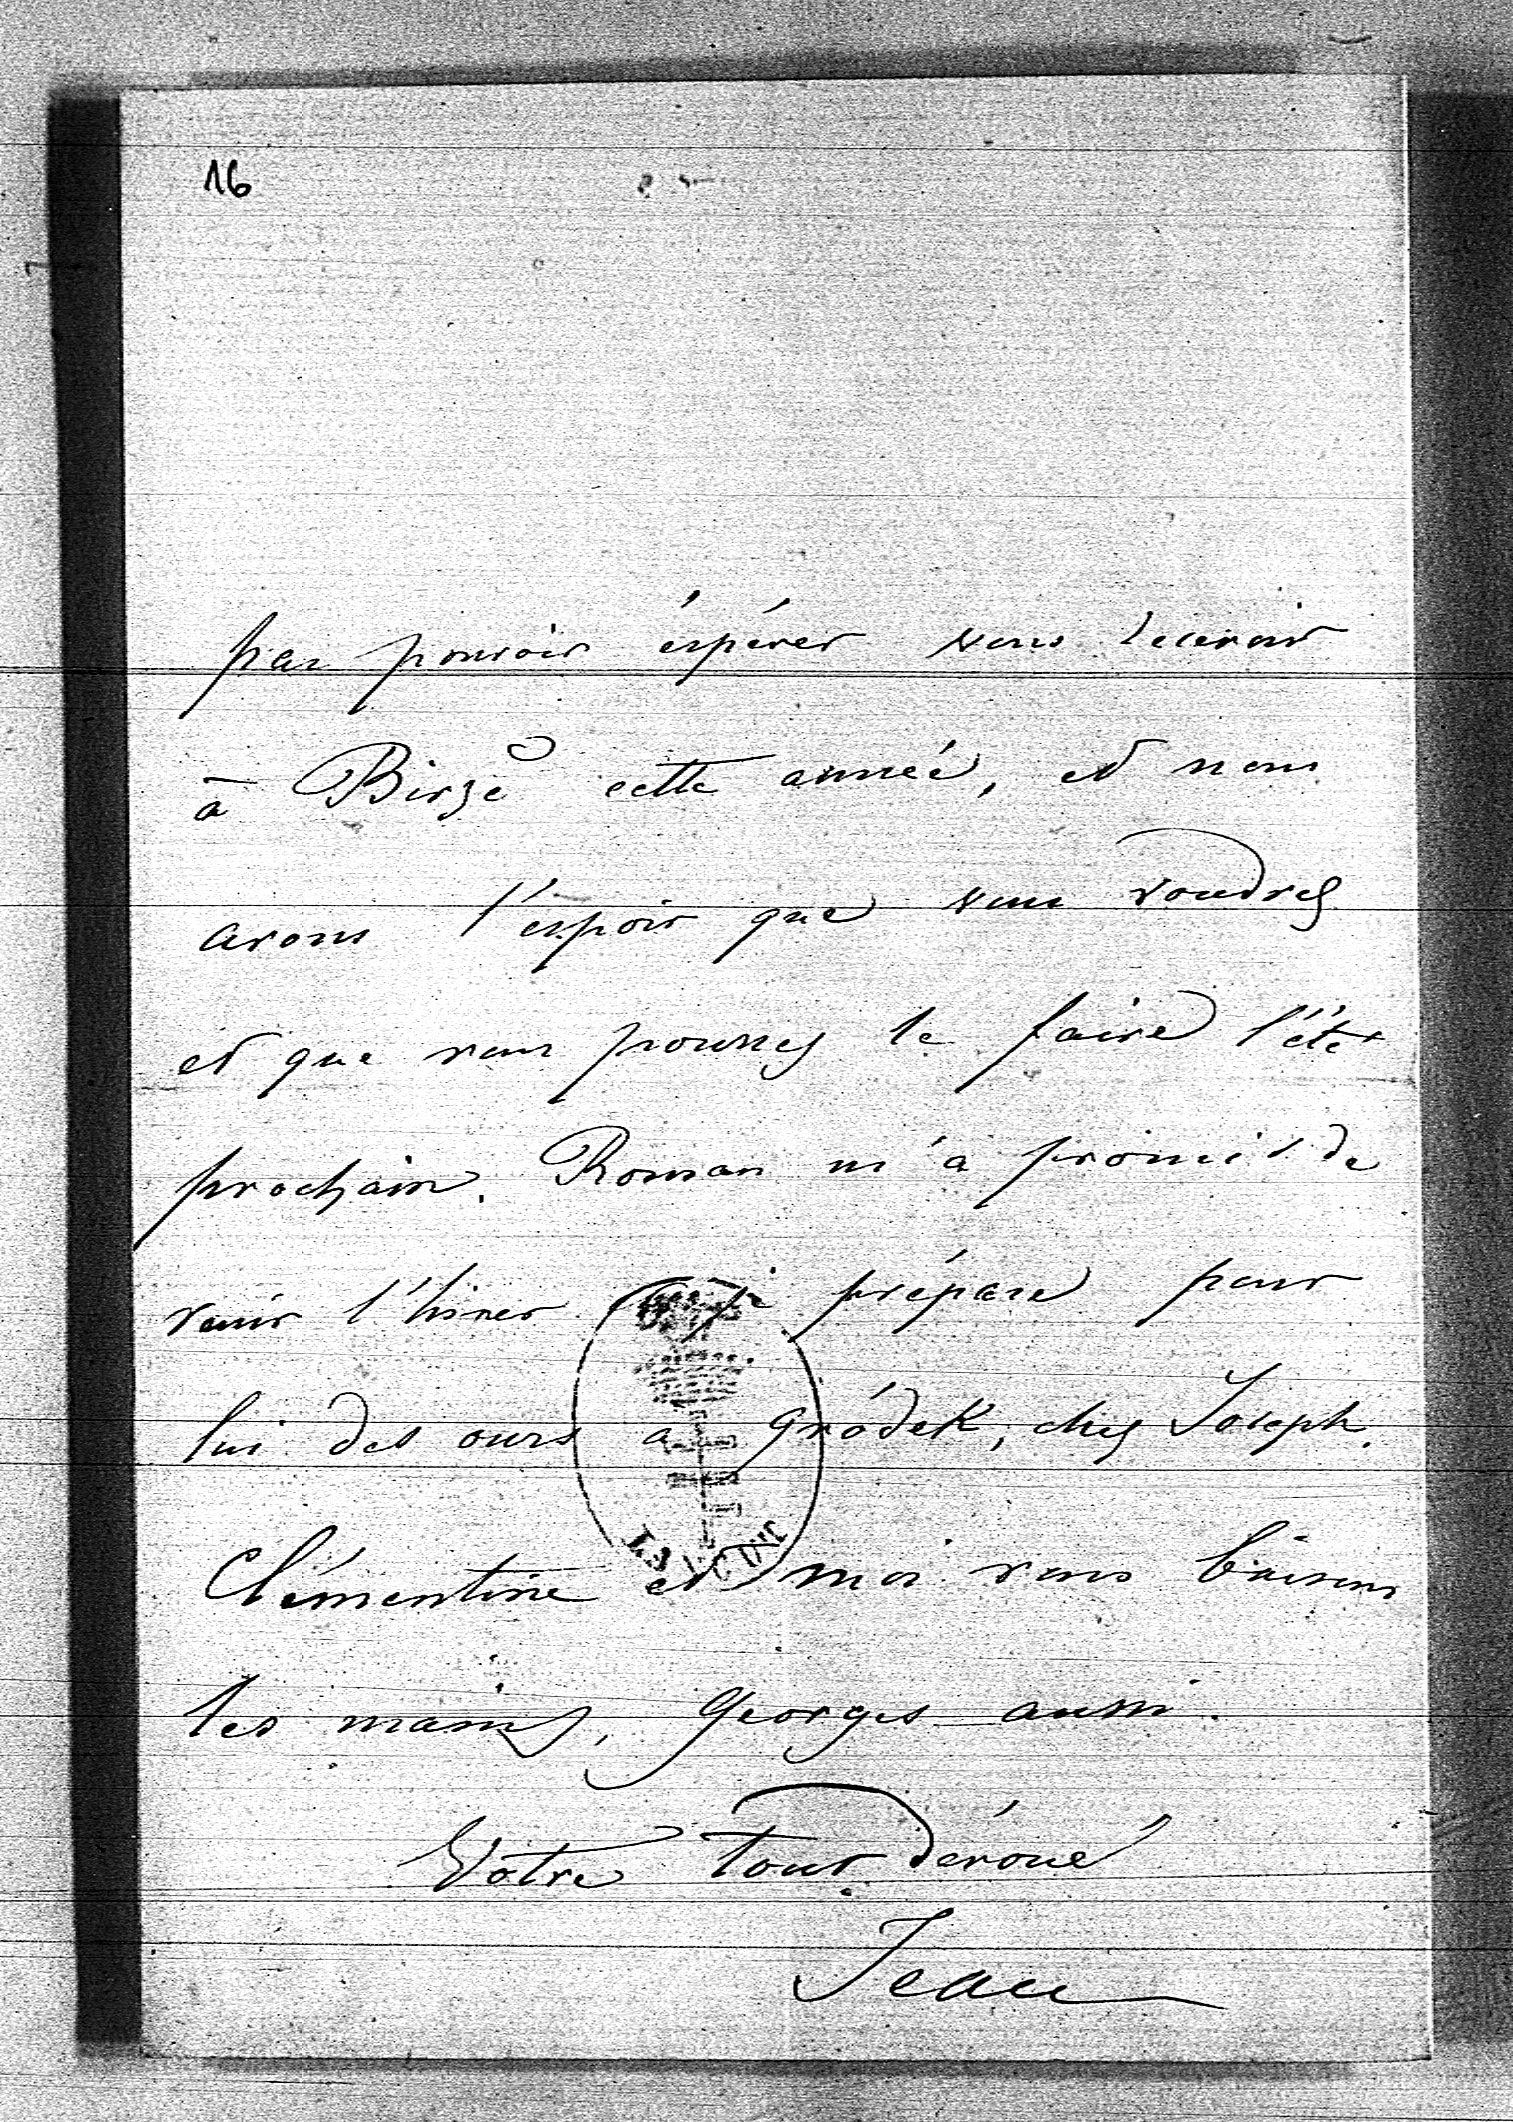 16
pas pouvoir éspérer vous recevoir
à Birżè cette année, et nous
avons l'éspoir que vous voudrez
et que vous pourrez le faire l'été
prochain. Roman m'a promis de
venir l'hiver. je prépare pour
lui des ours a Gródek, chez Joseph.
Clémentine et moi vous baisons
les mains, Georges aussi.
Votre tout dévoué
Jean